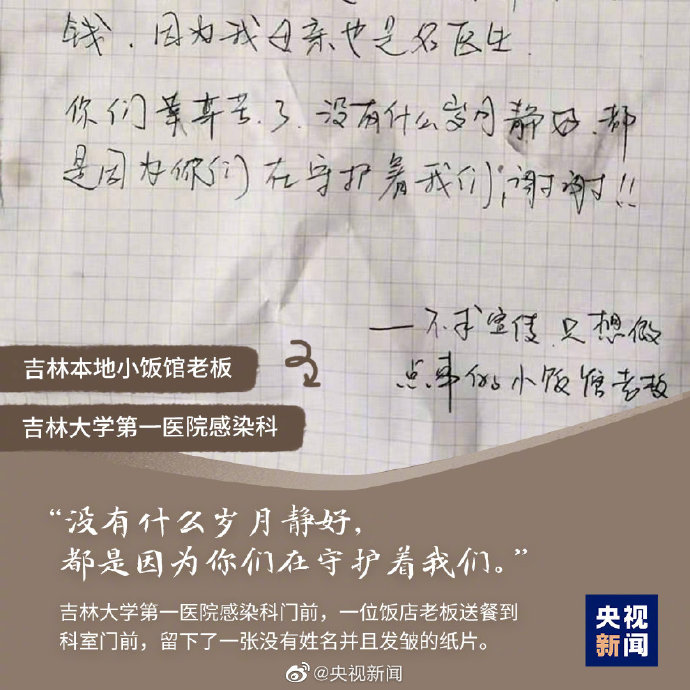 钱．因为我母亲也是名医生．
你们辛苦了．没有什么岁月静好．都
是因为你们在守护着我们，谢谢！！
——不求宣传．只想做
点事的小饭馆老板
吉林本地小饭馆老板
吉林大学第一医院感染科
“没有什么岁月静好，
都是因为你们在守护着我们。”
吉林大学第一医院感染科门前，一位饭店老板送餐到
科室门前，留下了一张没有姓名并且发皱的纸片。
央视
新闻
@央视新闻